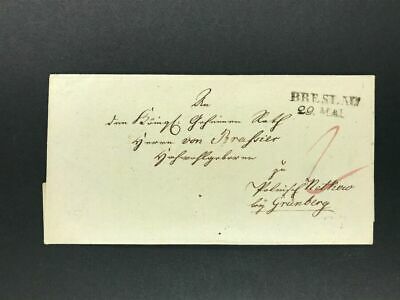 BRESLAU
29. MAI.
An
den Königl. Geheimen Rath
Herrn von Brassier
Hochwohlgeboren
zu
Polnisch Netkow
bey Grünberg